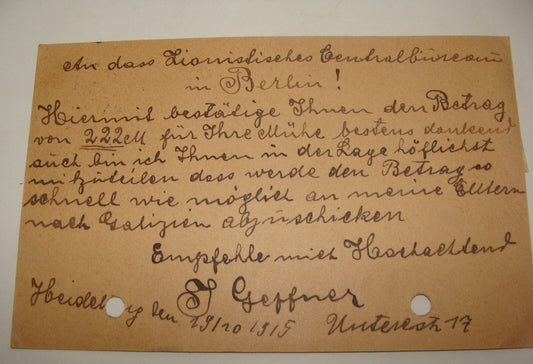 An dass Zionistisches Centralbüreau
in Berlin!
Hiermit bestätige Ihnen den Betrag
von 222M für Ihre Mühe bestens dankend
auch bin ich Ihnen in der Lage höflichst
mitzuteilen dass werde den Betrag so
schnell wie möglich an meine Eltern
nach Galizien abzuschicken
Empfehle mich Hochachtend
J Geffner
Heidelberg den 19/10 1915 Unterestr 17